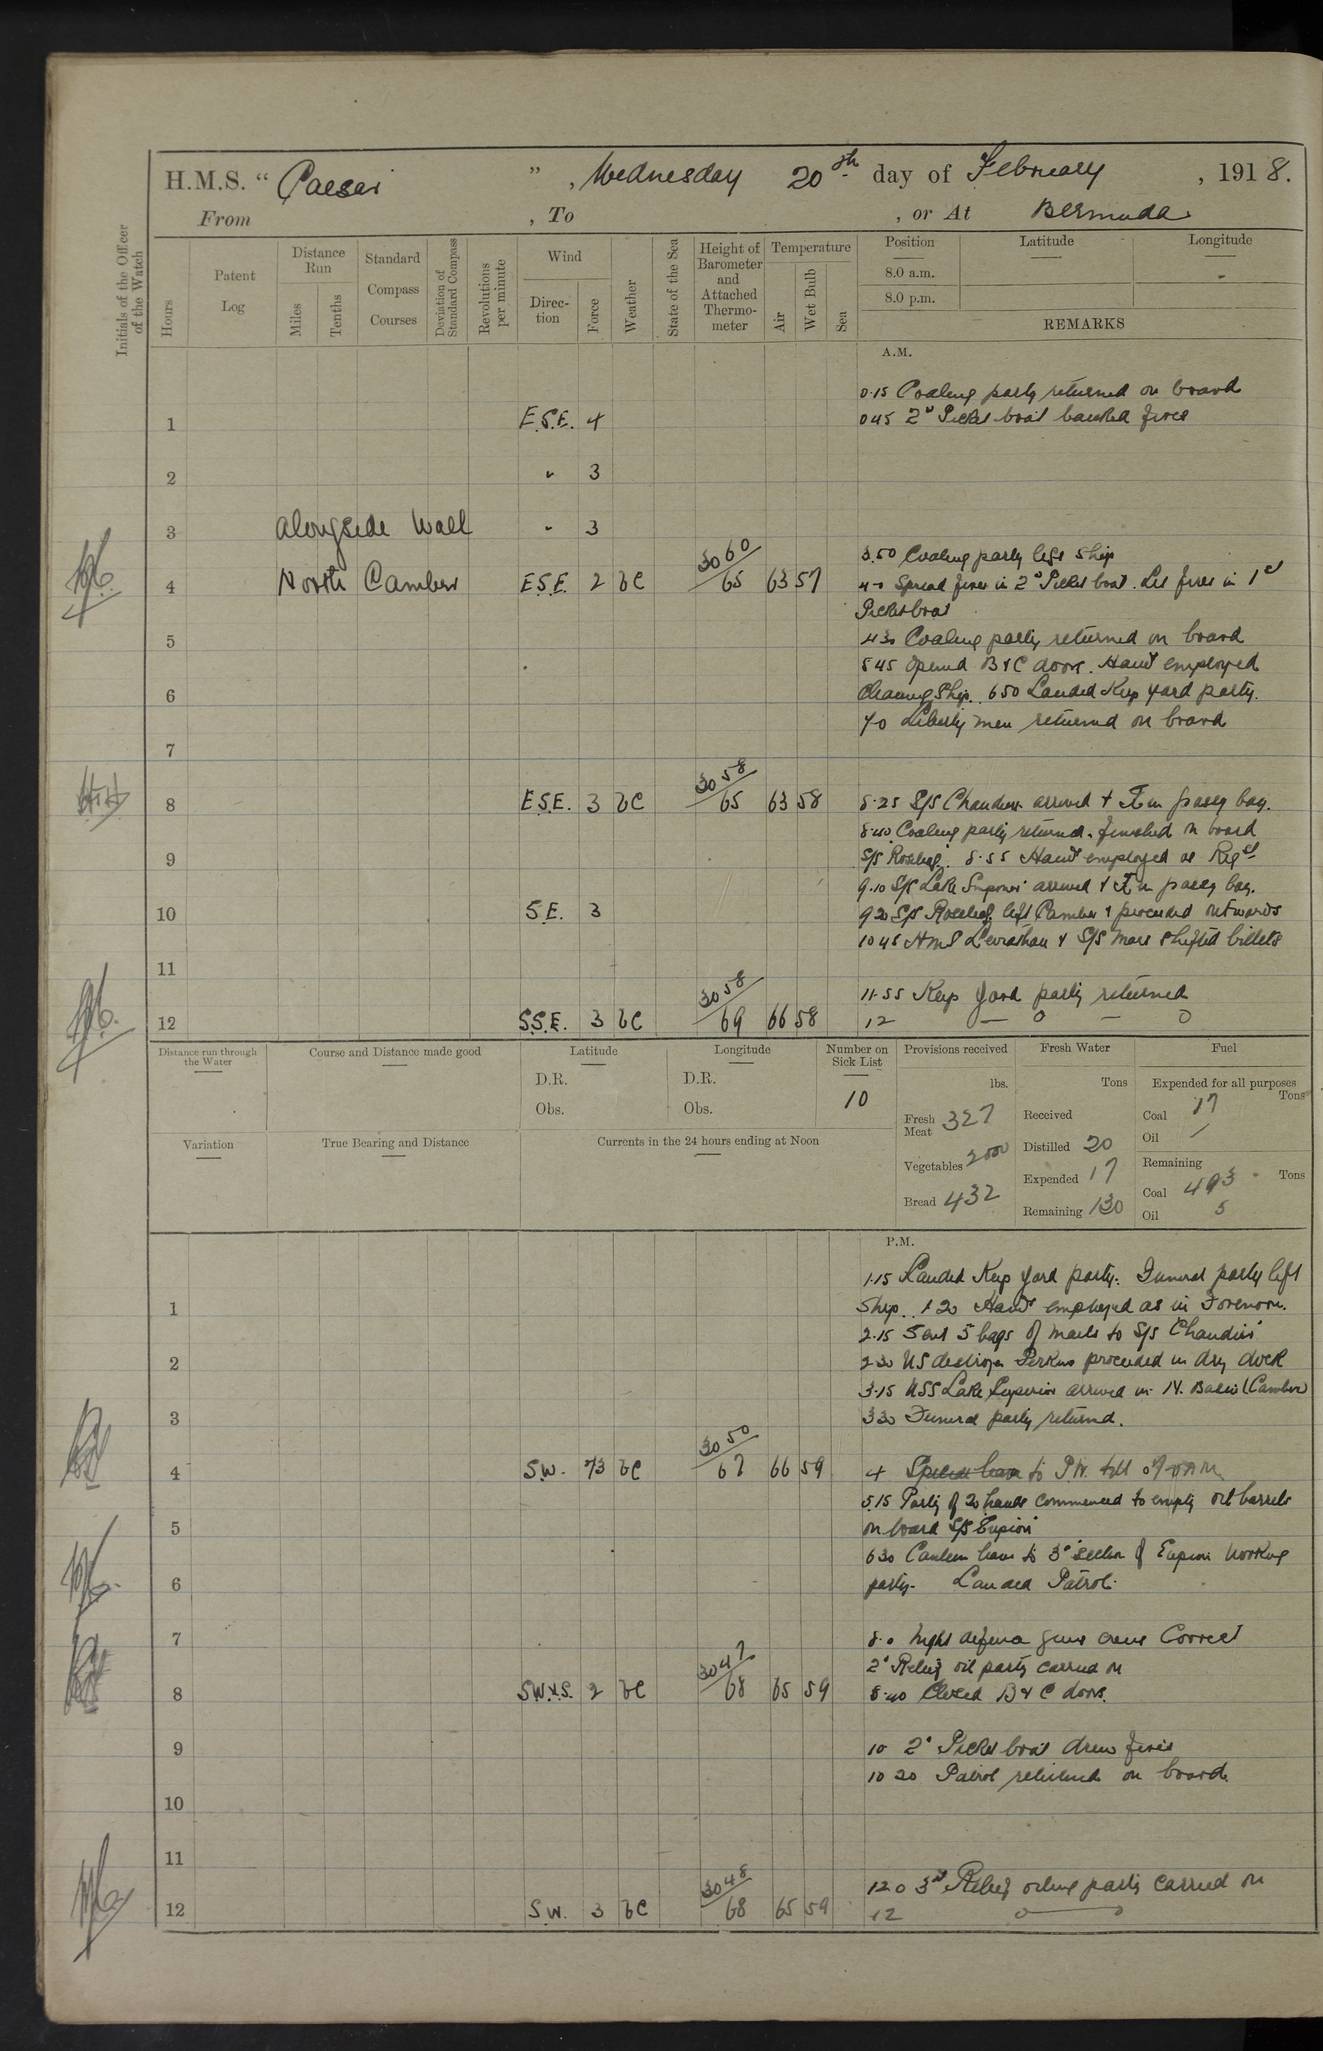 H.M.S. “ Caesar ” , Wednesday 20th day of February , 1918.
From , To , or At Bermuda
Initials of the Officer of the Watch
Hours
Patent Log
Distance Run
Miles
Tenths
Standard Compass Courses
Deviation of Standard Compass
Revolutions per minute
Wind
Direc-tion
Force
Weather
State of the Sea
Height of Barometer and Attached Thermo-meter
Temperature
Air
Wet Bulb
Sea
Position Latitude Longitude
8.0 a.m.
8.0 p.m.
REMARKS
A.M.
0.15 Coaling party returned on board
1 E.S.E. 4 045 2d Picket boat banked fires
2 " 3
3 alongside Wall " 3
3060
3.50 Coaling party left ship
4 North Camber E.S.E. 2 bc 65 63 57 4.0 Spread fires in 2d Picket boat. Lit fires in 1st
Picket boat
5 430 Coaling party returned on board
545 Opened B & C doors. Hands employed
6 Cleaning Ship. 650 Landed Keep yard party.
7.0 Liberty men returned on board
7
3058
8 E.S.E. 3 bc 65 63 58 8.25 S/S Chaudiere arrived & in Grassy bay.
8.40 Coaling party returned, finished on board
9 S/S 8.55 Hands employed as Reqd
9.10 S/S Lake Superior arrived & in Grassy bay.
10 S.E. 3 920 S/S left Camber & proceeded outwards
1045 HMS Leviathan & S/S shifted billets
11
3058
11.55 Keep Yard party returned
12 S.S.E. 3 bc 69 66 58 12
Distance run through the Water
Course and Distance made good
Latitude
D.R.
Obs.
Longitude
D.R.
Obs.
Number on Sick List
10
Variation
True Bearing and Distance
Currents in the 24 hours ending at Noon
Provisions received
lbs.
Fresh Meat 327
Vegetables 2000
Bread 432
Fresh Water
Tons
Received
Distilled 20
Expended 17
Remaining 130
Fuel
Expended for all purposes
Tons
Coal 17
Oil /
Remaining
Tons
Coal 493
Oil 5
P.M.
1.15 Landed Keep yard party. Funeral party left
1 Ship. 1.20 Hands employed as in Forenoon.
2.15 Sent 5 bags of mails to S/S Chaudiere
2 230 US destroyer Perkins proceeded in dry dock
3.15 USS Lake Superior arrived in N. Basin (Camber)
3 330 Funeral party returned.
3050
4 S.W. 3 bc 67 66 59 4 Special leave to P.W. till
5.15 Party of 20 hands commenced to empty oil barrels
5 on board S/S
630 Canteen leave to 3d section of working
6 party. Landed Patrol.
7 8.0 Night defence guns crews Correct
3047
2d Relief oil party carried on
8 S.W.xS. 2 bc 68 65 59 8.40 Closed B & C doors.
9 10 2d Picket boat drew fires
10 20 Patrol returned on board.
10
11
3048
12 0 3rd Relief oiling party carried on
12 S.W. 3 bc 68 65 59 12